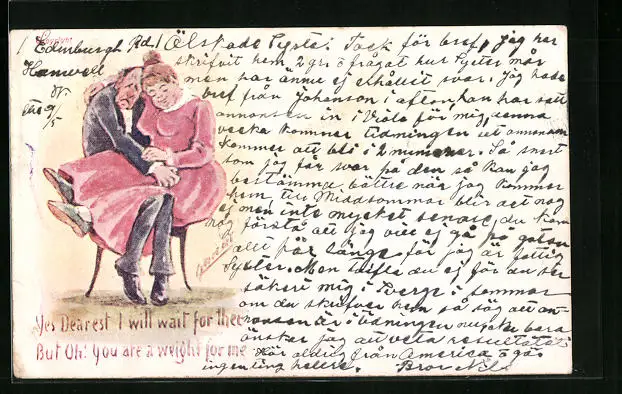 1 Edinburgh Rd. Älskade Syster! Tack för bref, jag har
Hanwell
W.
skrifvit hem 2 gr. o frågat hur Syster mår
men har ännu ej erhållit svar. Jag hade
bref från Johanson i afton han har satt
annonsen in i Viola för mig, denna
vecka kommer tidningen ut annonsen
kommer att bli i 2 nummer. Så snart
som jag får svar på den så kan jag
bestämma bättre när jag kommer
hem, till Middsommar blir det nog
ej men inte mycket senare, du kan
nog förstå att jag vill ej gå på gatan
allt för länge för jag är fattig
Syster. Men tvifla du ej för du ser
säkert mig i Sverge i sommar
om du skrifver hem så säg att
annonsen är i tidningen mycket bara
önskar jag att veta resultatet
Hör aldrig från America o ga
ingenting heller. Bror Nils
Yes Dearest I will wait for thee
But Oh! You are a weight for me